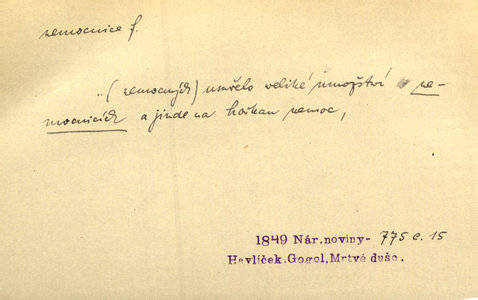 nemocnice f.
..(nemocných) umřelo veliké množství v ne-
mocnicích a jinde na horkou nemoc,
1849 Nár.noviny- 775 c. 15
Havlíček.Gogol,Mrtvé duše.